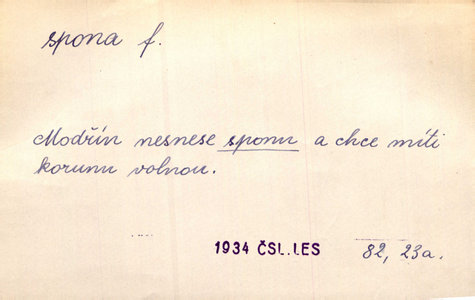 spona f.
Modřín nesnese sponu a chce míti
korunu volnou.
1934 ČSL.LES 82, 23a.